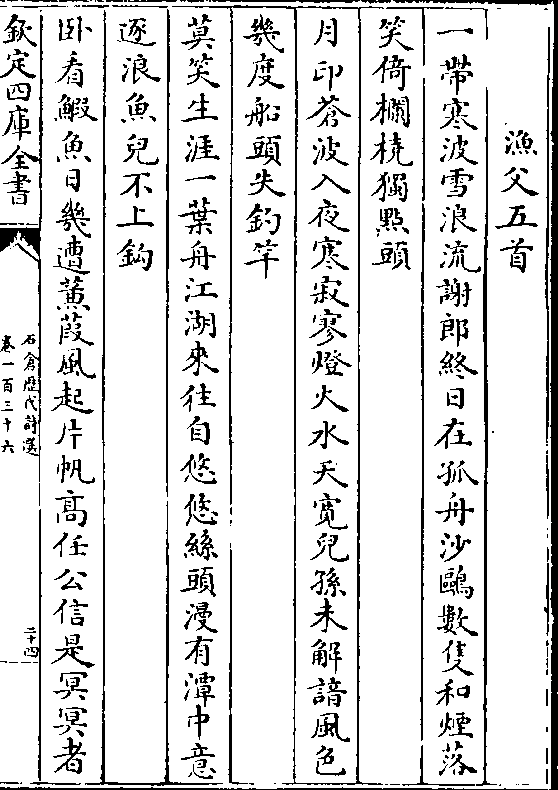 漁父五首
一帶寒波雪浪流謝郎終日在孤舟沙鷗數隻和煙落
笑倚欄橈獨㸃頭
月印蒼波入夜寒寂寥燈火水天寛兒孫未解諳風色
幾度船頭失釣竿
莫笑生涯一葉舟江湖來徃自悠悠絲頭漫有潭中意
逐浪魚兒不上鈎
卧看鰕魚日幾遭蒹葭風起片帆髙任公信是冥冥者
欽定四庫全書
石倉歴代詩選
卷一百三十六
二十四